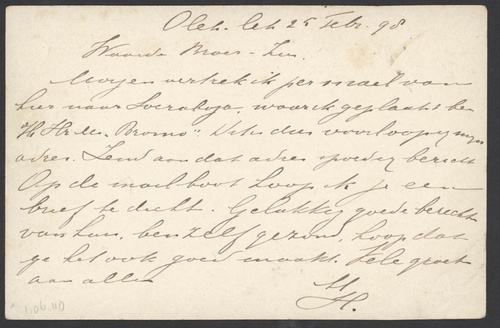 Oleh-leh 25 Febr. 98
Waarde Broer - Zus.
Morgen vertrek ik per mail van
hier naar Soerabaja, waar ik geplaatst ben
Hr. Ms. "Bromo". Dit is dus voorloopig mijn
adres. Zend aan dat adres spoedig bericht
Op de mailboot hoop ik je een
brief te dicht. Gelukkig goede berichten
van huis, ben zelf gezond, hoop dat
ge het ook goed maakt. Vele groet
aan allen
H.